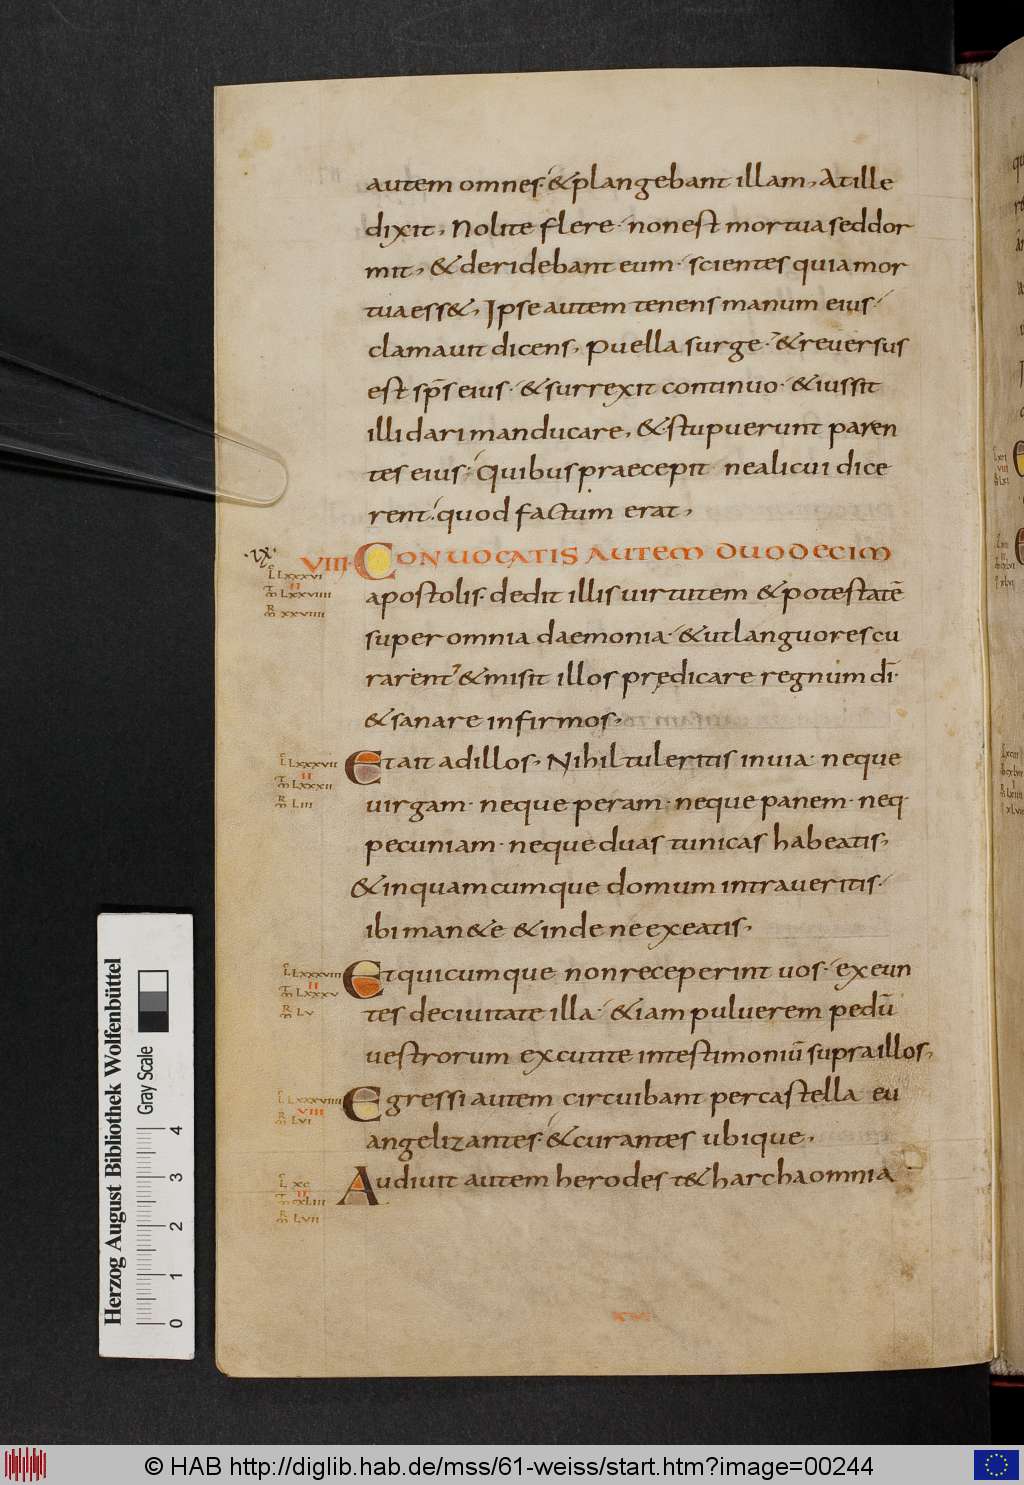 autem omnes· &plangebant illam, Atille
dixit, Nolite flere· nonest mortua seddor
mit, &deridebant eum· scientes quiamor
tua ess&, Ipse autem tenens manum eius·
clamauit dicens, puella surge· &reuersus
est sp̄s eius· &surrexit continuo· &iussit
illi dari manducare, &stupuerunt paren
tes eius· Quibus praecepit nealicui dice
rent· quod factum erat,
·ix·
VIIII· CONUOCATIS AUTEM DUODECIM
L LXXXVI
II
m LXXVIIII
m XXVIIII
apostolis· dedit illis uirtutem &potestatē
super omnia daemonia· &utlanguores cu
rarent &misit illos prędicare regnum dī·
&sanare infirmos,
L LXXXVII
II
m LXXXII
m LIII
Etait adillos, Nihil tuleritis inuia· neque
uirgam· neque peram· neque panem· neq·
pecuniam· neque duas tunicas habeatis,
&inquamcumque domum intraueritis·
ibi man&e &inde ne exeatis,
L LXXXVIII
II
m LXXXV
m LV
Etquicumque nonreceperint uos· exeun
tes deciuitate illa· &iam puluerem pedū
uestrorum excutite intestimoniū supra illos,
L LXXXVIIII
VIII
m LVI
Egressi autem circuibant percastella eu
angelizantes· &curantes ubique,
L XC
II
m CXLIII
m LVII
Audiuit autem herodes t&harcha omnia
Herzog August Bibliothek Wolfenbüttel
Gray Scale
0 1 2 3 4
© HAB http://diglib.hab.de/mss/61-weiss/start.htm?image=00244